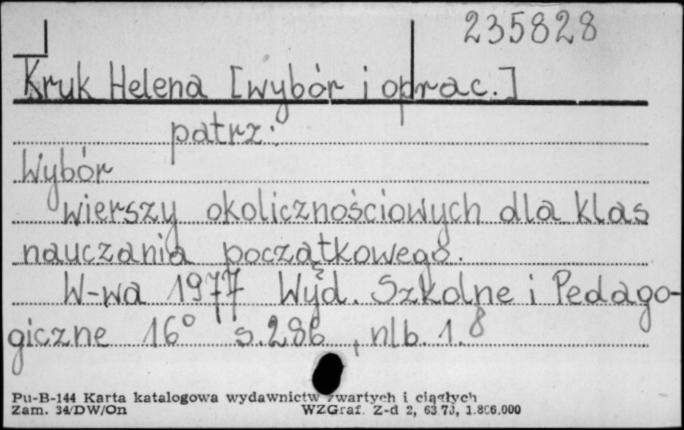 235828
Kruk Helena [wybór i oprac.]
patrz:
Wybór
wierszy okolicznościowych dla klas
nauczania początkowego.
W-wa 1977 Wyd. Szkolne i Pedago-
giczne 16° s.286, nlb. 1.8
Pu-B-144 Karta katalogowa wydawnictw zwartych i ciągłych
Zam. 34/DW/On WZGraf. Z-d 2, 1.806.000